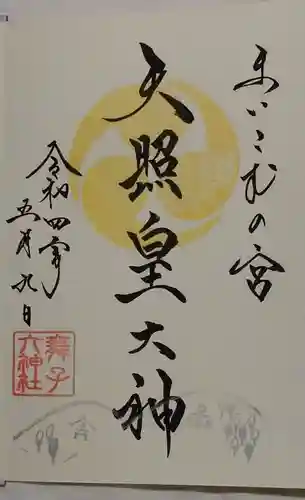 まいこむの宮
天照皇大神
令和四年
五月九日
舞子
六神社